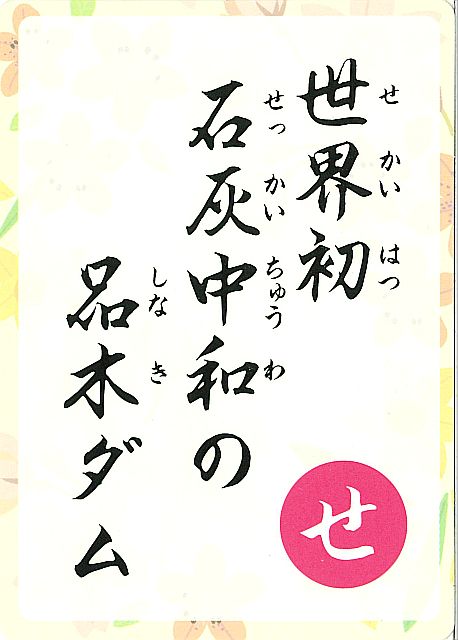 世界初
せ かい はつ
石灰中和の
せっ かい ちゅう わ
品木ダム
しな き
せ